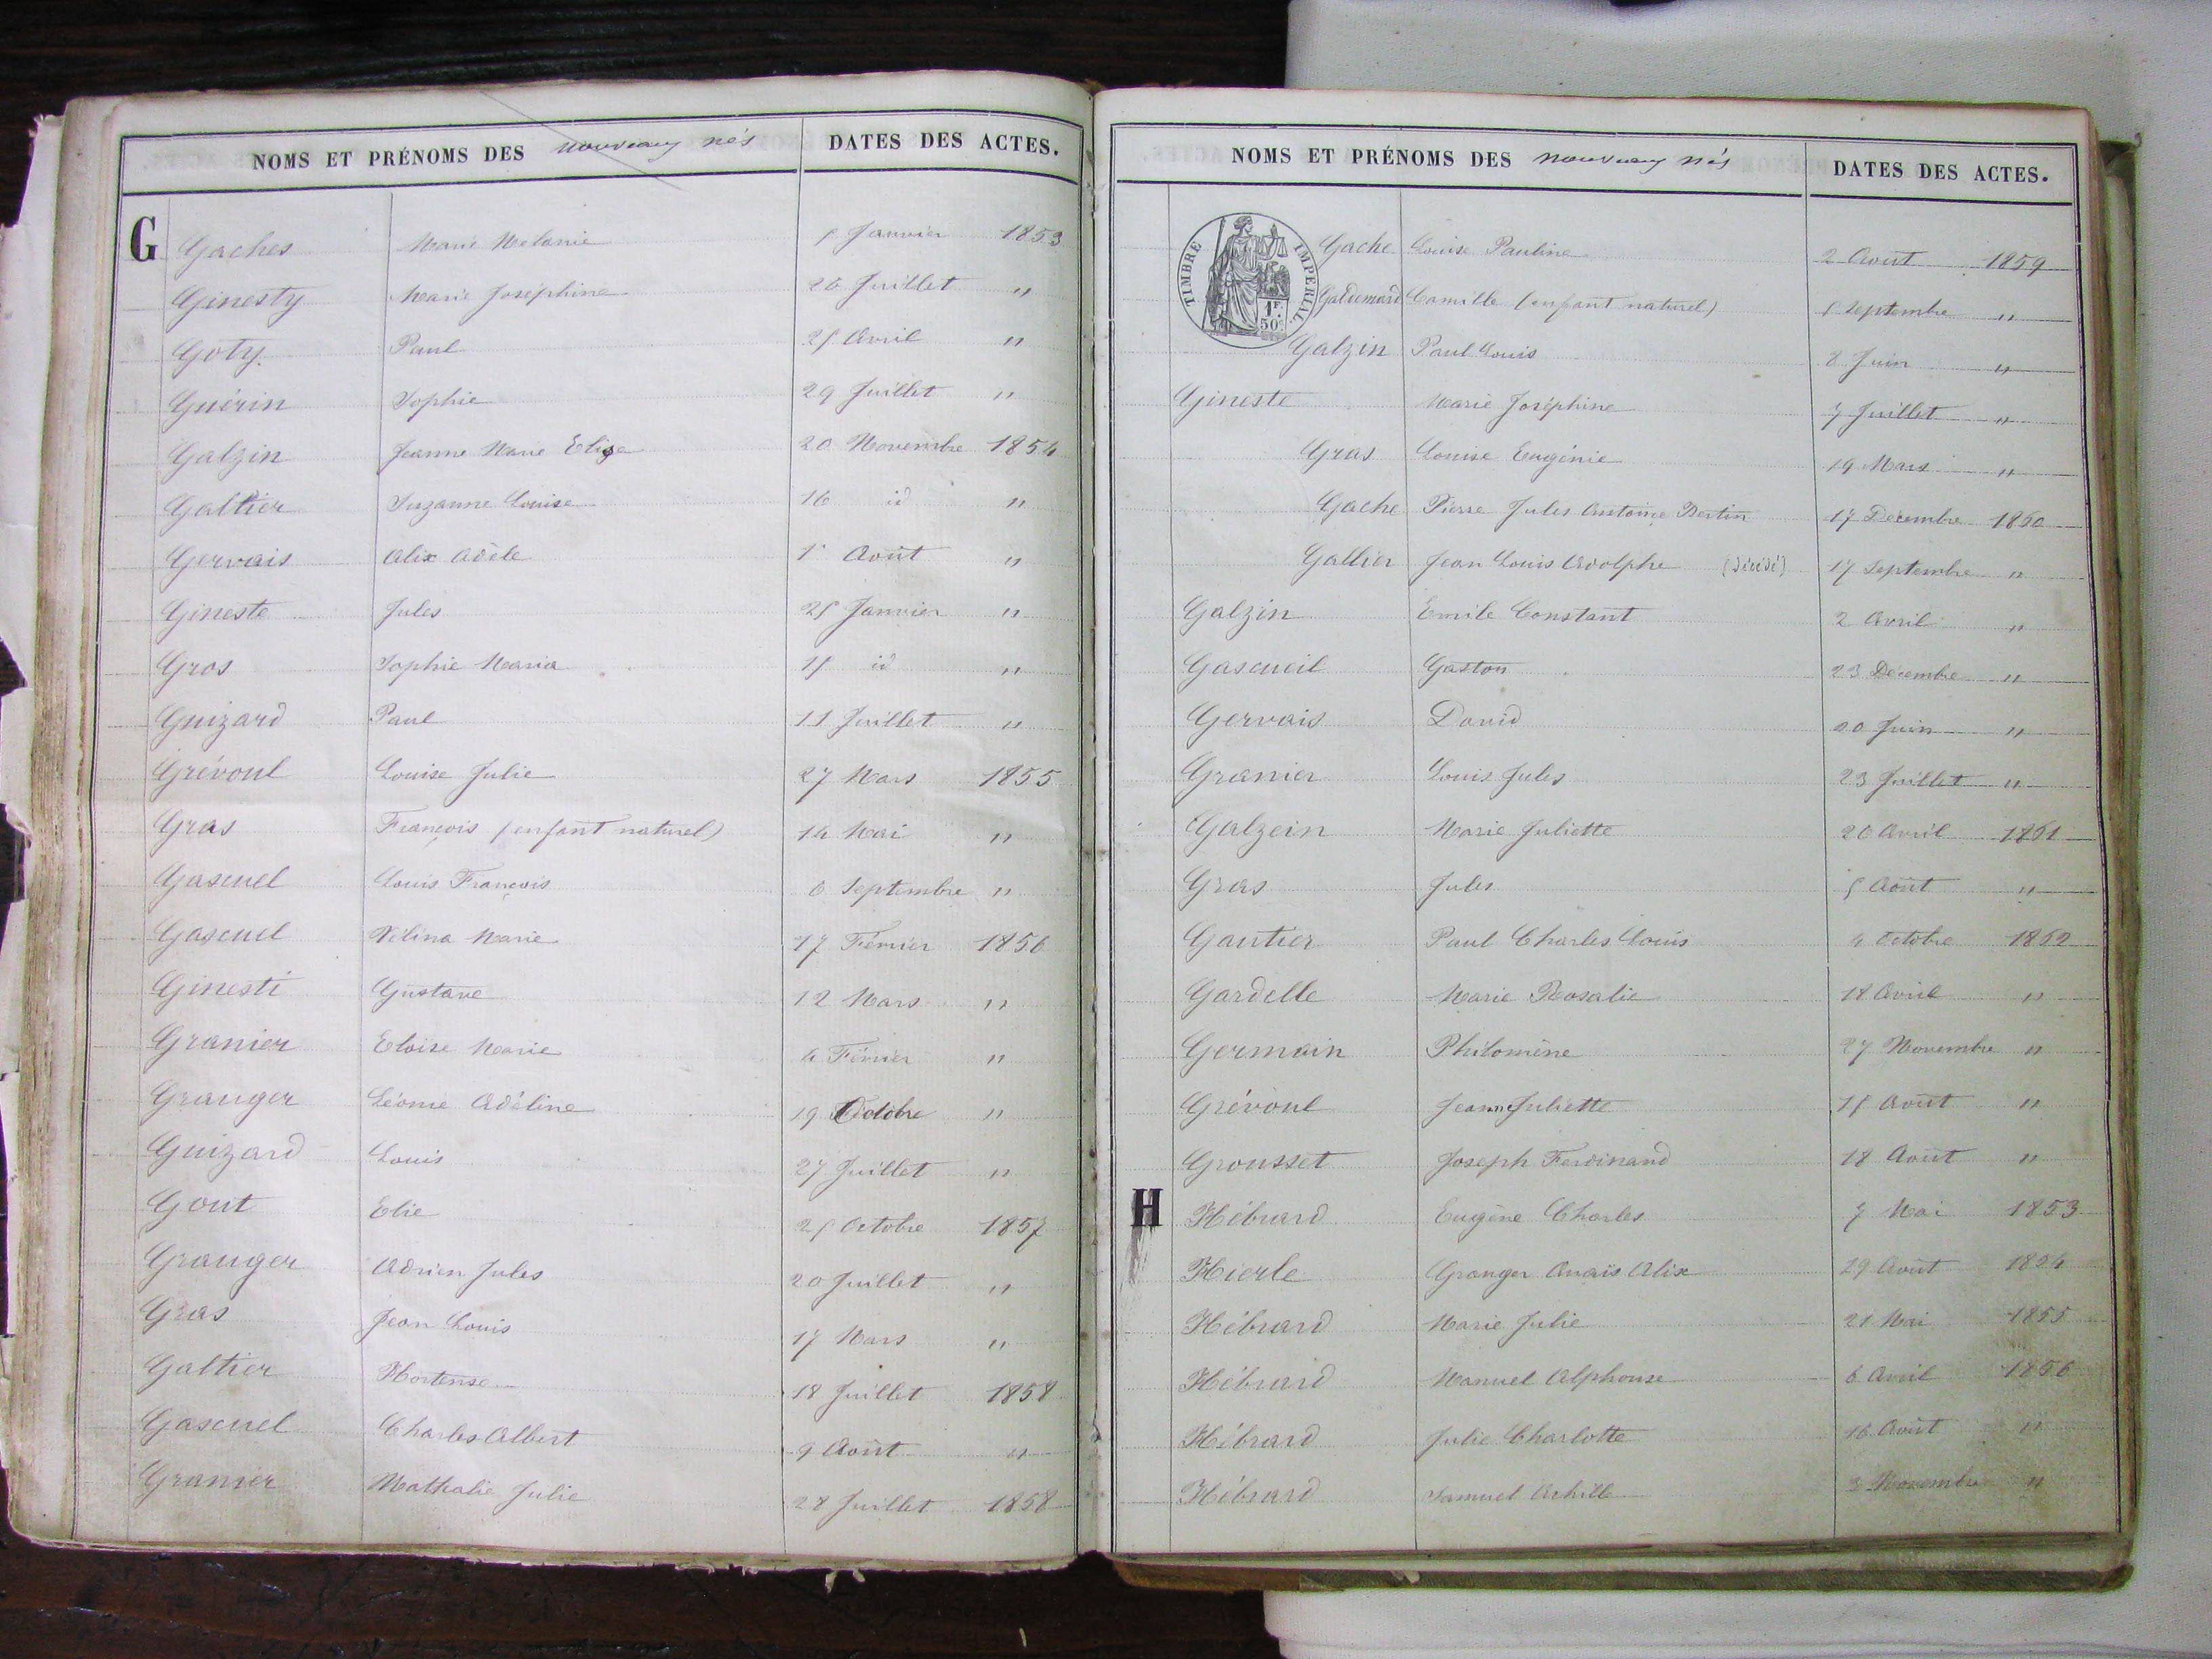 NOMS ET PRÉNOMS DES nouveaux nés DATES DES ACTES.
G Gaches Marie Melanie 5 Janvier 1853
Ginesty Marie Joséphine 26 Juillet "
Goty Paul 25 Avril "
Guérin Sophie 29 Juillet "
Galzin Jeanne Marie Elise 20 Novembre 1854
Galtier Suzanne Louise 16 id "
Gervais Alix Adèle 1r Août "
Gineste Jules 25 Janvier "
Gros Sophie Maria 15 id "
Guizard Paul 11 Juillet "
Grévoul Louise Julie 27 Mars 1855
Gras François (enfant naturel) 14 Mai "
Gascuel Louis François 6 Septembre "
Gascuel Zélina Marie 17 Février 1856
Ginesti Gustave 12 Mars "
Granier Eloise Marie 4 Février "
Granger Léonie Adéline 19 Octobre "
Guizard Louis 27 Juillet "
Gout Elie 25 Octobre 1857
Granger Adrien Jules 20 Juillet "
Gras Jean Louis 17 Mars "
Galtier Hortense 18 Juillet 1858
Gascuel Charles Albert 9 Août "
Granier Nathalie Julie 28 Juillet 1858
NOMS ET PRÉNOMS DES nouveaux nés DATES DES ACTES.
TIMBRE IMPERIAL
1F.
50c.
Gache Louise Pauline 2 Août 1859
Galdemard Camille (enfant naturel) 5 Septembre "
Galzin Paul Louis 8 Juin "
Gineste Marie Joséphine 7 Juillet "
Gras Louise Eugénie 19 Mars "
Gache Pierre Jules Antoine Bertin 17 Décembre 1860
Galtier Jean Louis Adolphe (décédé) 17 Septembre "
Galzin Emile Constant 2 Avril "
Gascueil Gaston 23 Décembre "
Gervais David 20 Juin "
Granier Louis Jules 23 Juillet "
Galzein Marie Juliette 20 Avril 1861
Gras Jules 5 Août "
Gautier Paul Charles Louis 4 Octobre 1862
Gardelle Marie Rosalie 18 Avril "
Germain Philomène 27 Novembre "
Grévoul Jeanne Juliette 15 Août "
Grousset Joseph Ferdinand 18 Août "
H Hébrard Eugène Charles 7 Mai 1853
Hierle Granger Anais Alix 29 Août 1854
Hébrard Marie Julie 21 Mai 1855
Hébrard Manuel Alphonse 6 Avril 1856
Hébrard Julie Charlotte 16 Août "
Hébrard Samuel Achille 3 Novembre "